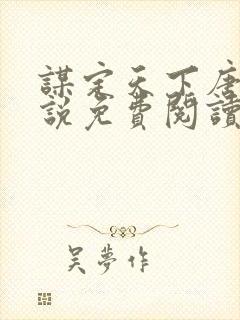 謀定天下唐
說免費閱讀
吴夢作